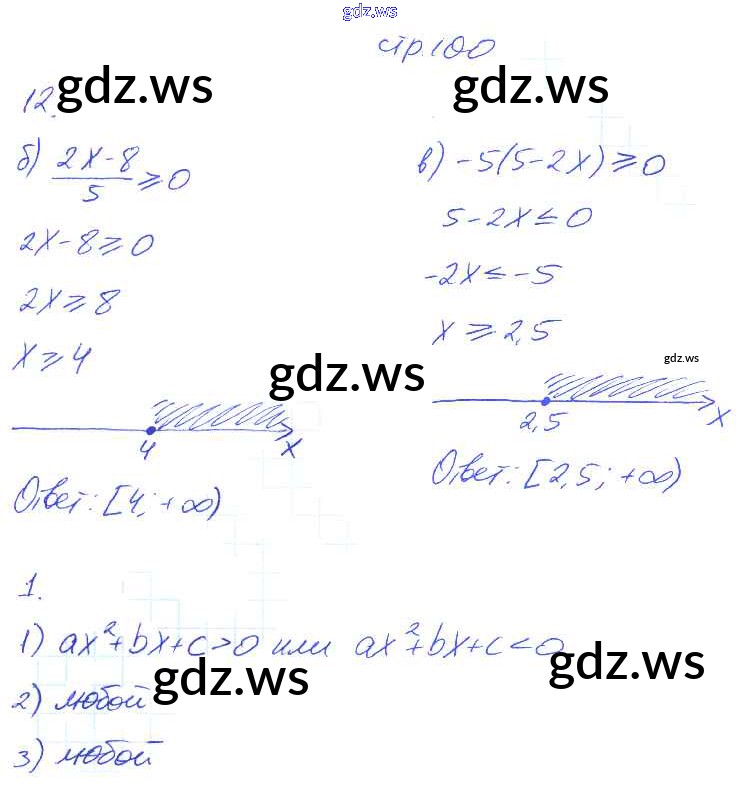 gdz.ws
стр.100
gdz.ws gdz.ws
12.
б) (2x-8)/5 ⩾ 0
2x-8⩾0
2x⩾8
x⩾4
4 x
Ответ: [4; +∞)
в) -5(5-2x)⩾0
5-2x≤0
-2x≤-5
x⩾2,5
gdz.ws
gdz.ws
2,5 x
Ответ: [2,5; +∞)
1.
1) ax²+bx+c>0 или ax²+bx+c<0
gdz.ws gdz.ws
2) любой
3) любой